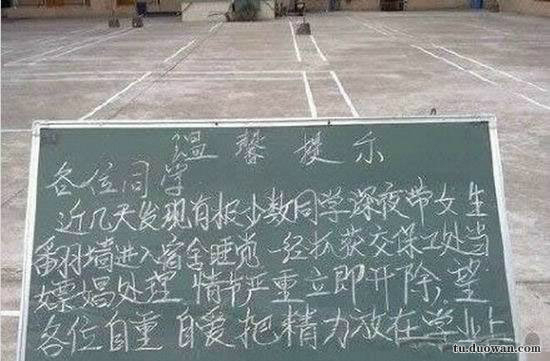 温馨提示
各位同学
近几天发现有极少数同学深夜带女生
翻墙进入宿舍睡觉 一经抓获交保卫处当
嫖娼处理 情节严重立即开除,望
各位自重 自爱把精力放在学业上
tu.duowan.com